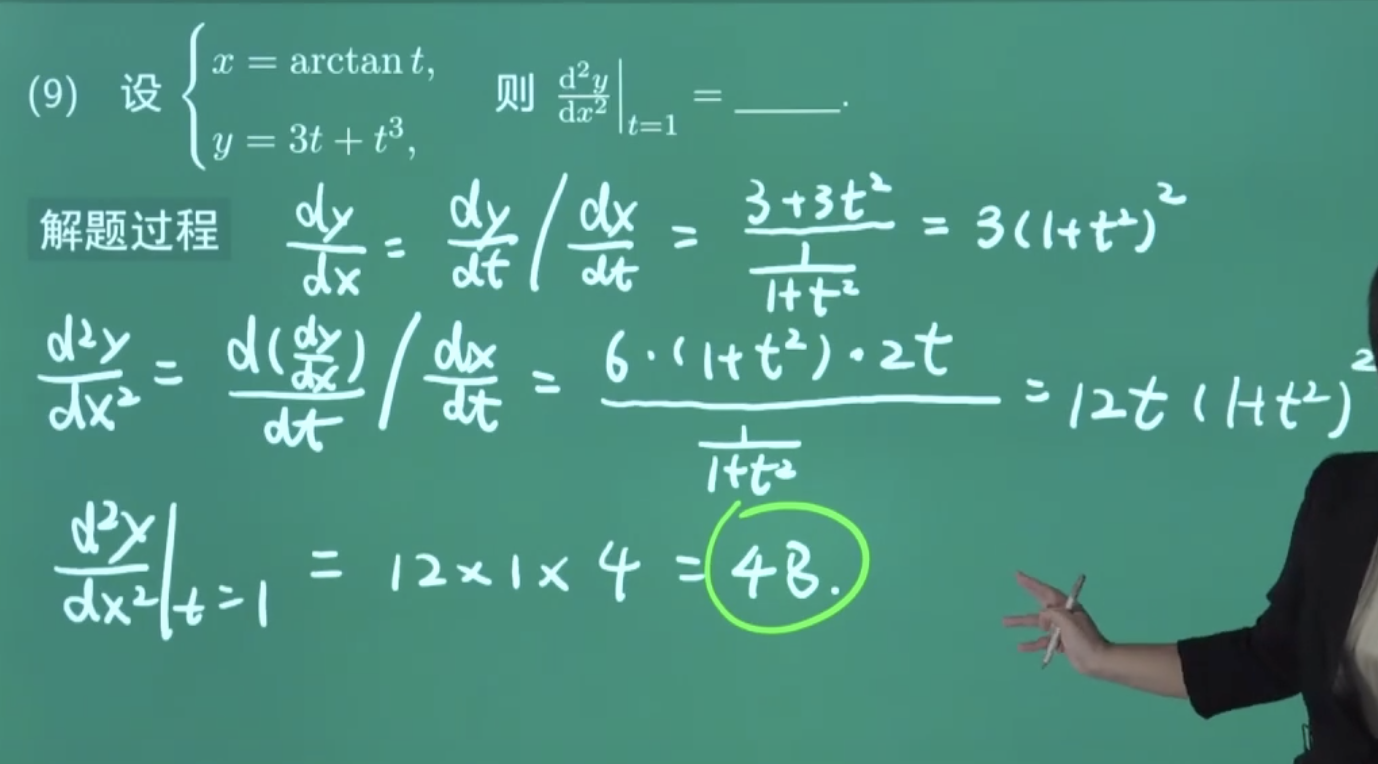 (9) 设 { x = arctan t, y = 3t + t³, 则 d²y/dx² |t=1 = _____.
解题过程 dy/dx = dy/dt / dx/dt = (3+3t²)/(1/(1+t²)) = 3(1+t²)²
d²y/dx² = d(dy/dx)/dt / dx/dt = (6·(1+t²)·2t)/(1/(1+t²)) = 12t(1+t²)²
d²y/dx² |t=1 = 12×1×4 = 48.